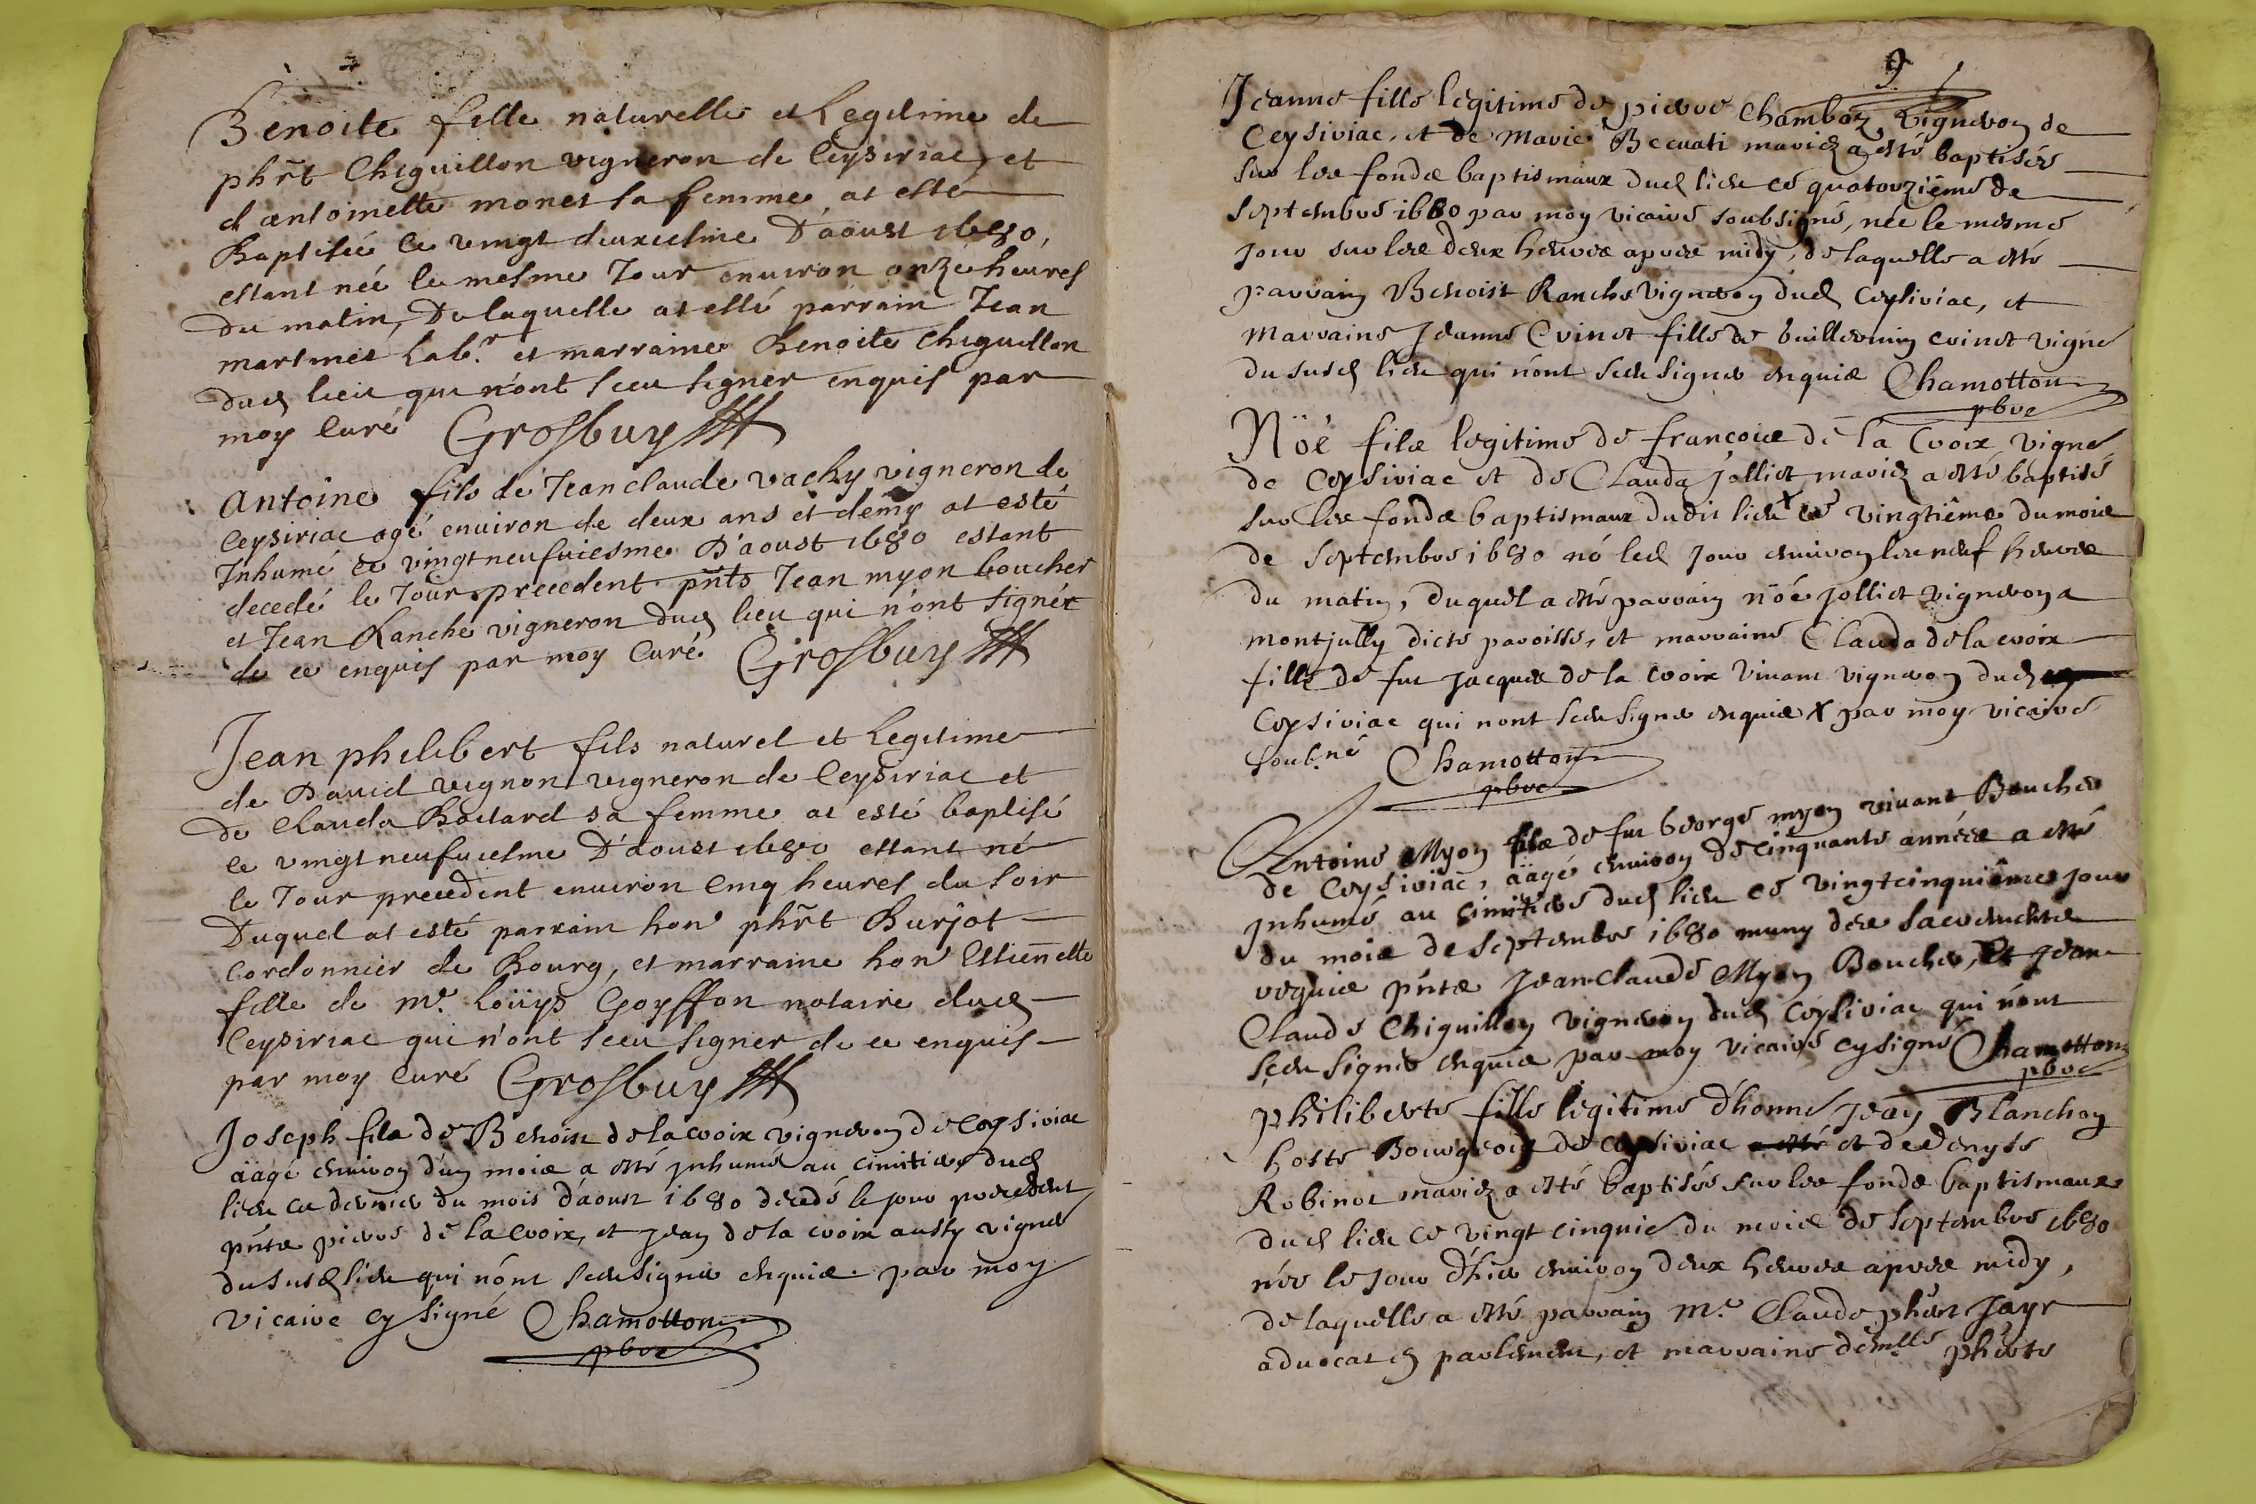 Benoite fille naturelle et Legitime de
phr̃t Chiguillon vigneron de Ceysiriac, et
d'antoinette monet sa femme at esté
Baptisée ce vingt deuxiesme D'aoust 1680,
estant née le mesme Jour enuiron onze heures
du matin, De laquelle at esté parrain Jean
martinet Lab.r et marraine Benoite Chiguillon
dud lieu qui n'ont sceu signer enquis par
moy Curé Grosbuy
Antoine fils de Jean claude vachy vigneron de
Ceysiriac agé enuiron de deux ans et demy at esté
Inhumé ce vingt neufuiesme D'aoust 1680 estant
decedé le Jour precedent pñts Jean myon boucher
et Jean Ranche vigneron dud lieu qui n'ont signér
de ce enquis par moy Curé Grosbuy
Jean philibert fils naturel et Legitime
de Dauid vignon vigneron de Ceysiriac et
de Clauda Bostard sa femme at esté baptisé
ce vingt neufuiesme D'aoust 1680 estant né
le Jour precedent enuiron Cinq heures du soir
Duquel at esté parrain hon phr̃t Burjot
Cordonnier de Bourg, et marraine hon Estien̄ette
fille de m.e Loüys Goyffon notaire dud
Ceysiriac qui n'ont sceu signer de ce enquis
par moy Curé Grosbuy
Joseph fils de Benoist de la croix vigneron de Ceysiriac
äagé enuiron d'un mois a esté jnhumé au cimitiere dud
lieu ce dernier du mois d'aoust 1680 decedé le jour precedent
pñts pierre de la Croix, et jean de la croix aussy vigne
du susd lieu qui n'ont sceu signer enquis par moy
Vicaire cy signé Chamotton
pbre
9
Jeanne fille legitime de pierre Chambaz vigneron de
Ceysiriac, et de Marie Becuati mariez a esté baptisée
sur les fonds baptismaux dud lieu ce quatorziême de
septembre 1680 par moy vicaire soubsigné, née le mesme
jour sur les deux heures apres midy, de laquelle a esté
parrain Benoist Ranche vigneron dud Ceysiriac, et
marraine Jeanne Cuinet fille de Guillermin cuinet vigne
du susd lieu qui n'ont sceu signer enquis Chamotton
pbre
Nöé fils legitime de francois de la Croix vigne
de Ceysiriac et de Clauda jolliet mariez a esté baptisé
sur les fonds baptismaux dudit lieu X ce vingtiême du mois
de septembre 1680 né led jour enuiron les neuf heures
du matin, duquel a esté parrain nöé jolliet vigneron a
montjully dicte paroisse, et marraine Clauda de la croix
fille de fut jacques de la croix viuant vigneron dud
Ceysiriac qui n'ont sceu signer enquis X par moy vicaire
soub.né Chamotton
pbre
Antoine Myon fils de fut George myon viuant Boucher
de Ceysiriac, äagé enuiron de cinquante années a esté
jnhumé au cimitiere dud lieu ce vingtcinquiême jour
du mois de septembre 1680 muny des sacrements
requis pñts Jean Claude Myon Boucher, et jean
Claude Chiguillon vigneron dud Ceysiriac qui n'ont
sceu signer enquis par moy vicaire cy signé Chamotton
pbre
Philiberte fille legitime d'honne jean Blanchon
hoste Bourgeois de Ceysiriac a esté et de Denyse
Robinot mariez a esté baptisée sur les fonds baptismaux
dud lieu ce vingt cinquie du mois de septembre 1680
née le jour d'hier enuiron deux heures apres midy,
de laquelle a esté parrain M.e Claude pheirt Jayr
aduocat en parlement, et marraine dem.lle pheirte